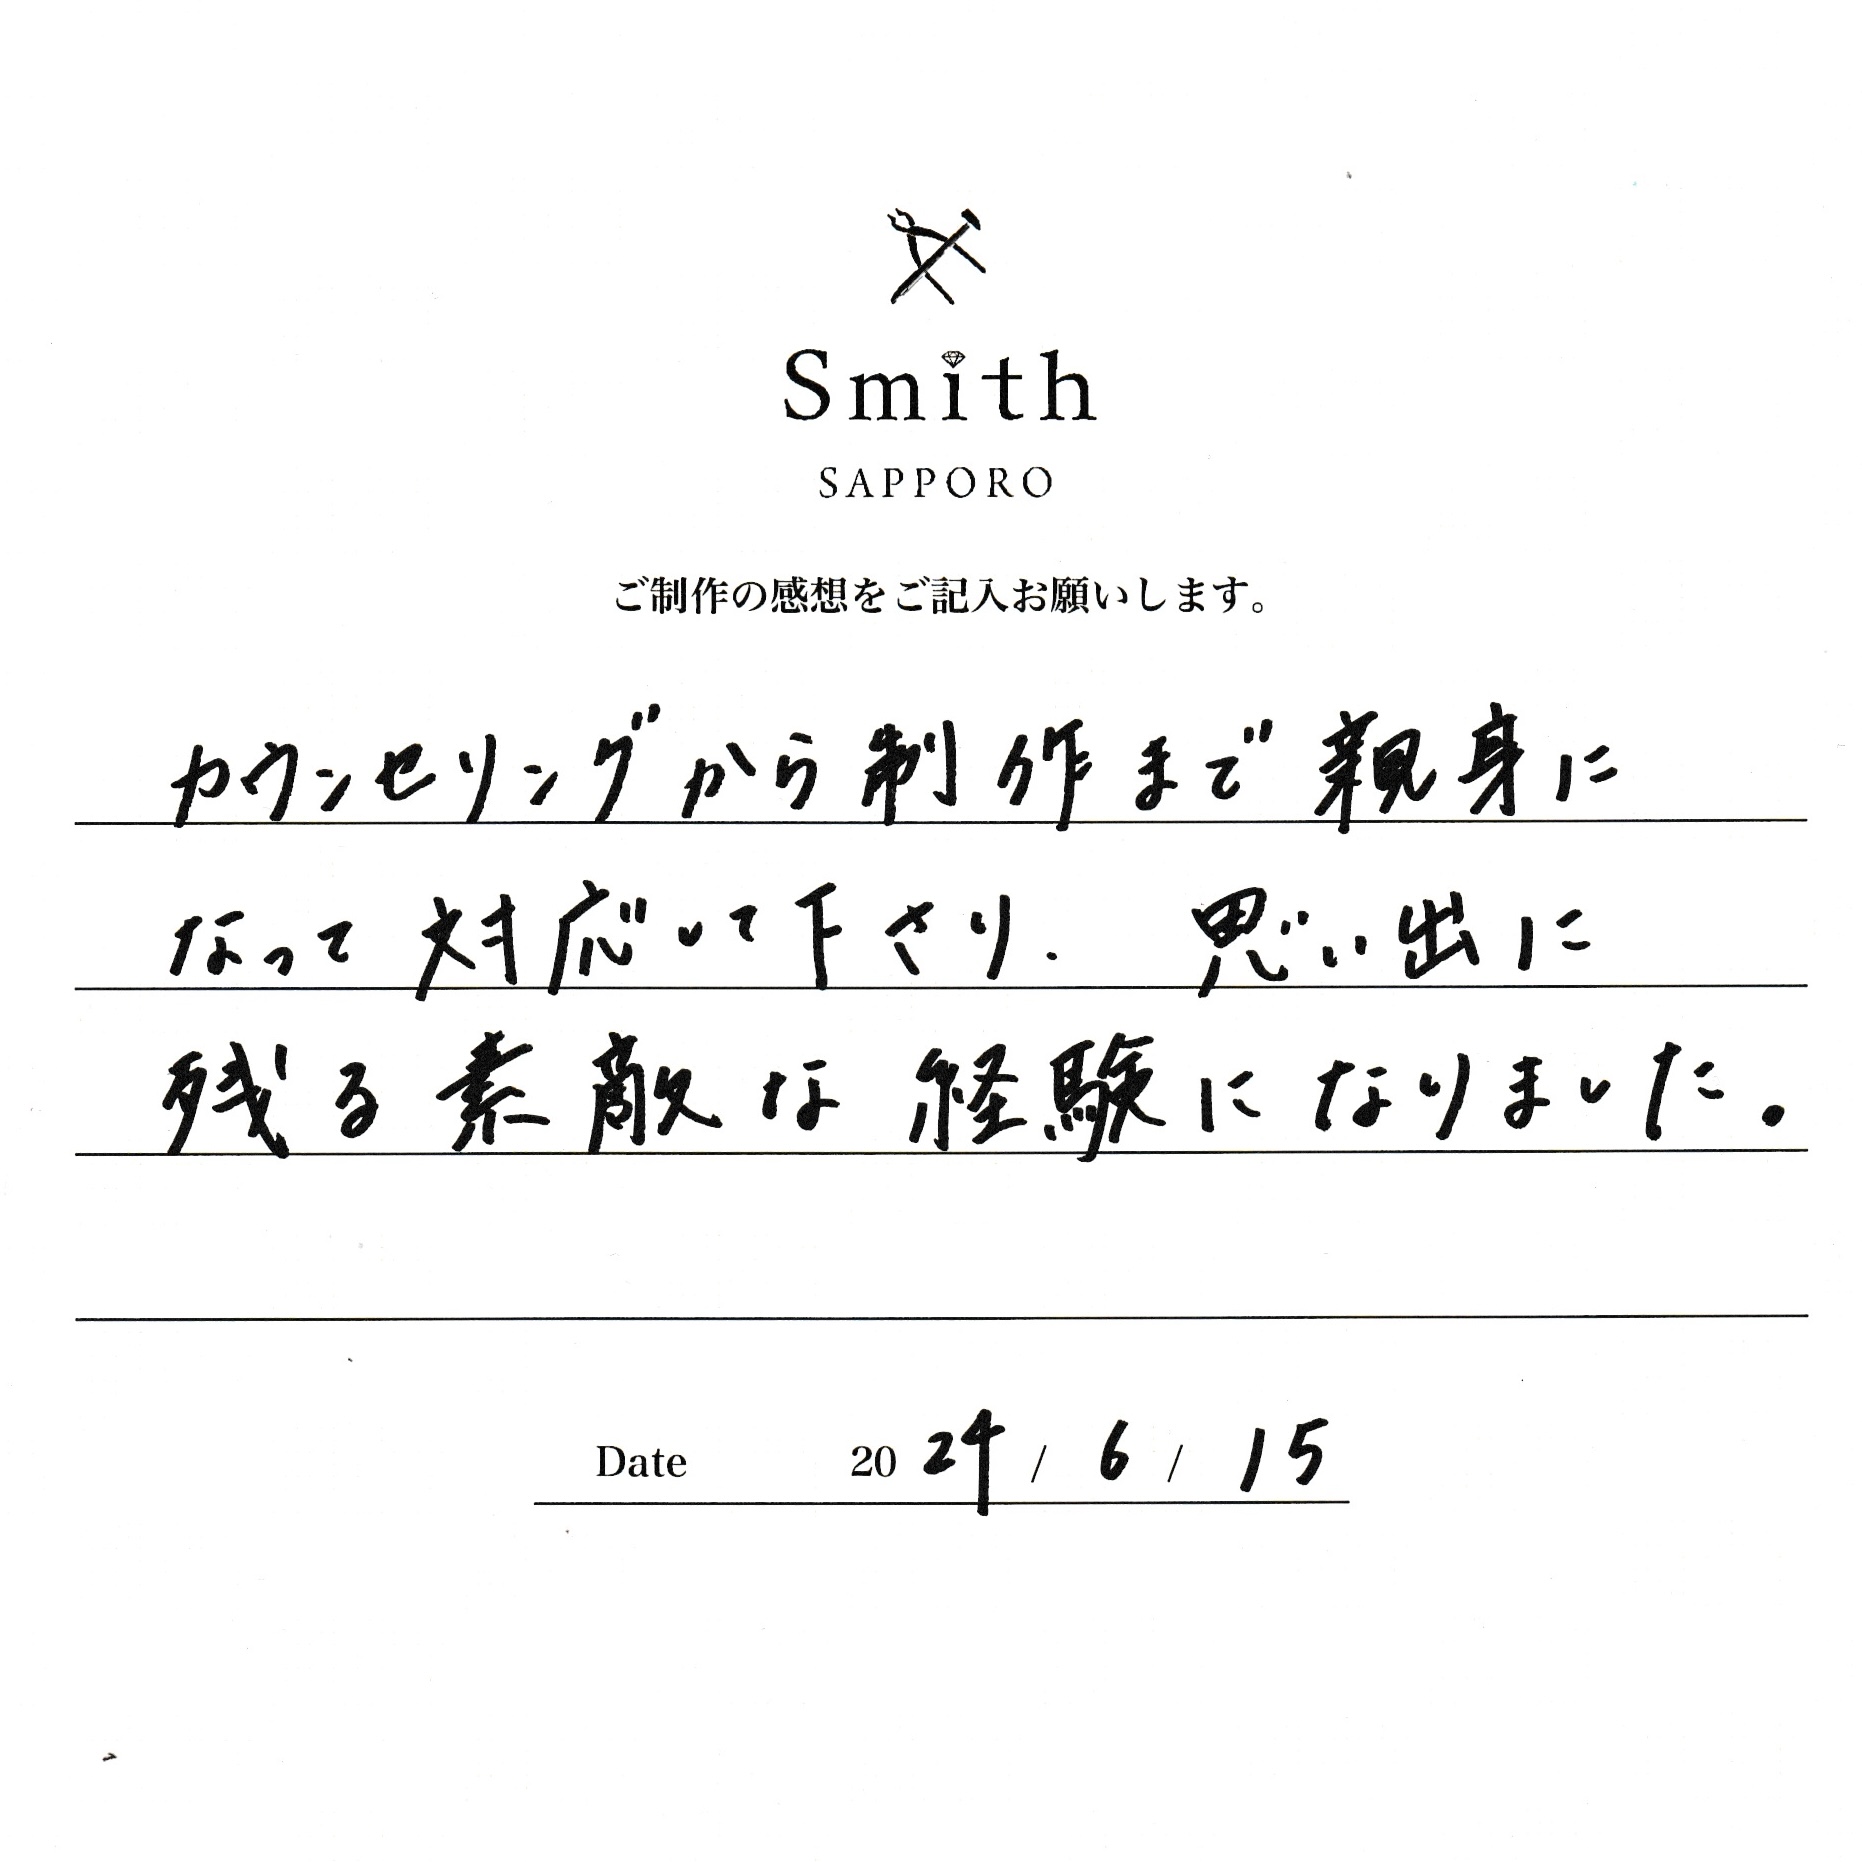 Smith
SAPPORO
ご制作の感想をご記入お願いします。
カウンセリングから制作まで親身に
なって対応して下さり、思い出に
残る素敵な経験になりました。
Date 2024 / 6 / 15